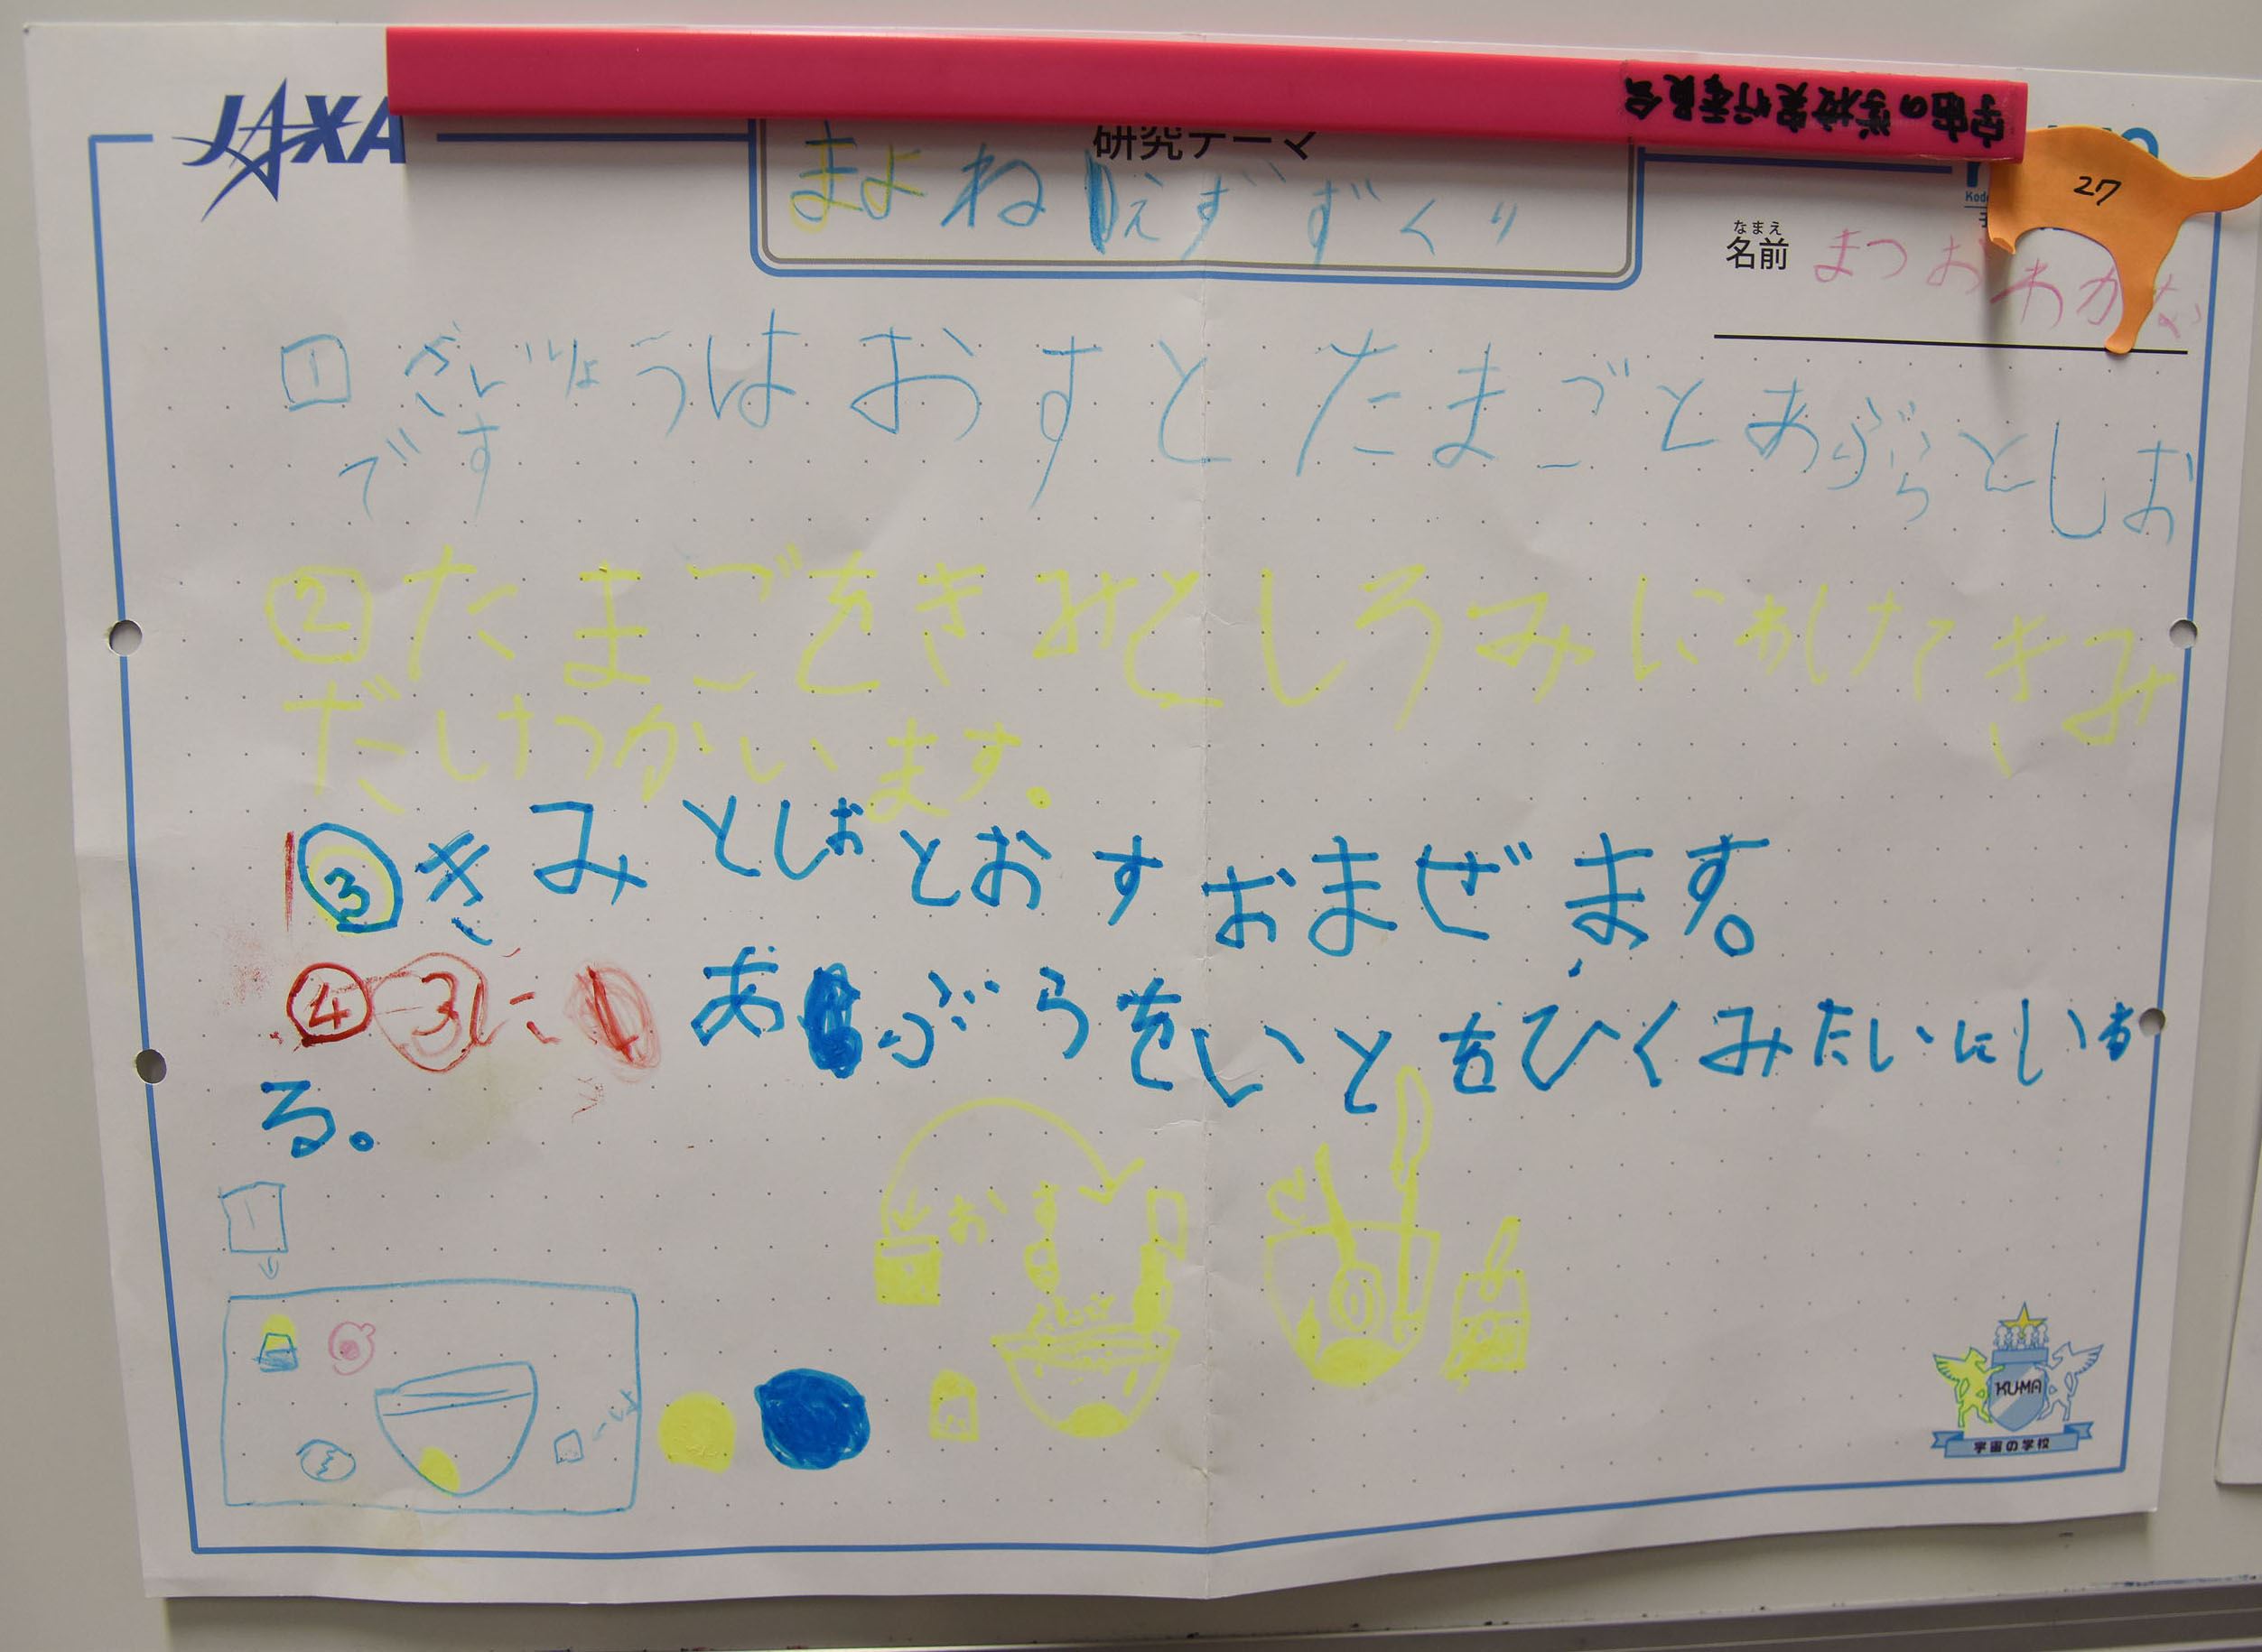 JAXA
宇宙の学校実行委員会
研究テーマ
まよねえずずくり
27
なまえ
名前 まつおわかな
1 ざいりょうはおすとたまごとあぶらとしお
です
② たまごをきみとしろみにわけてきみ
だけつかいます。
③ きみとしおとおすおまぜます。
④ 3に あぶらをいとをひくみたいにいれ
る。
1
おす
KU-MA
宇宙の学校